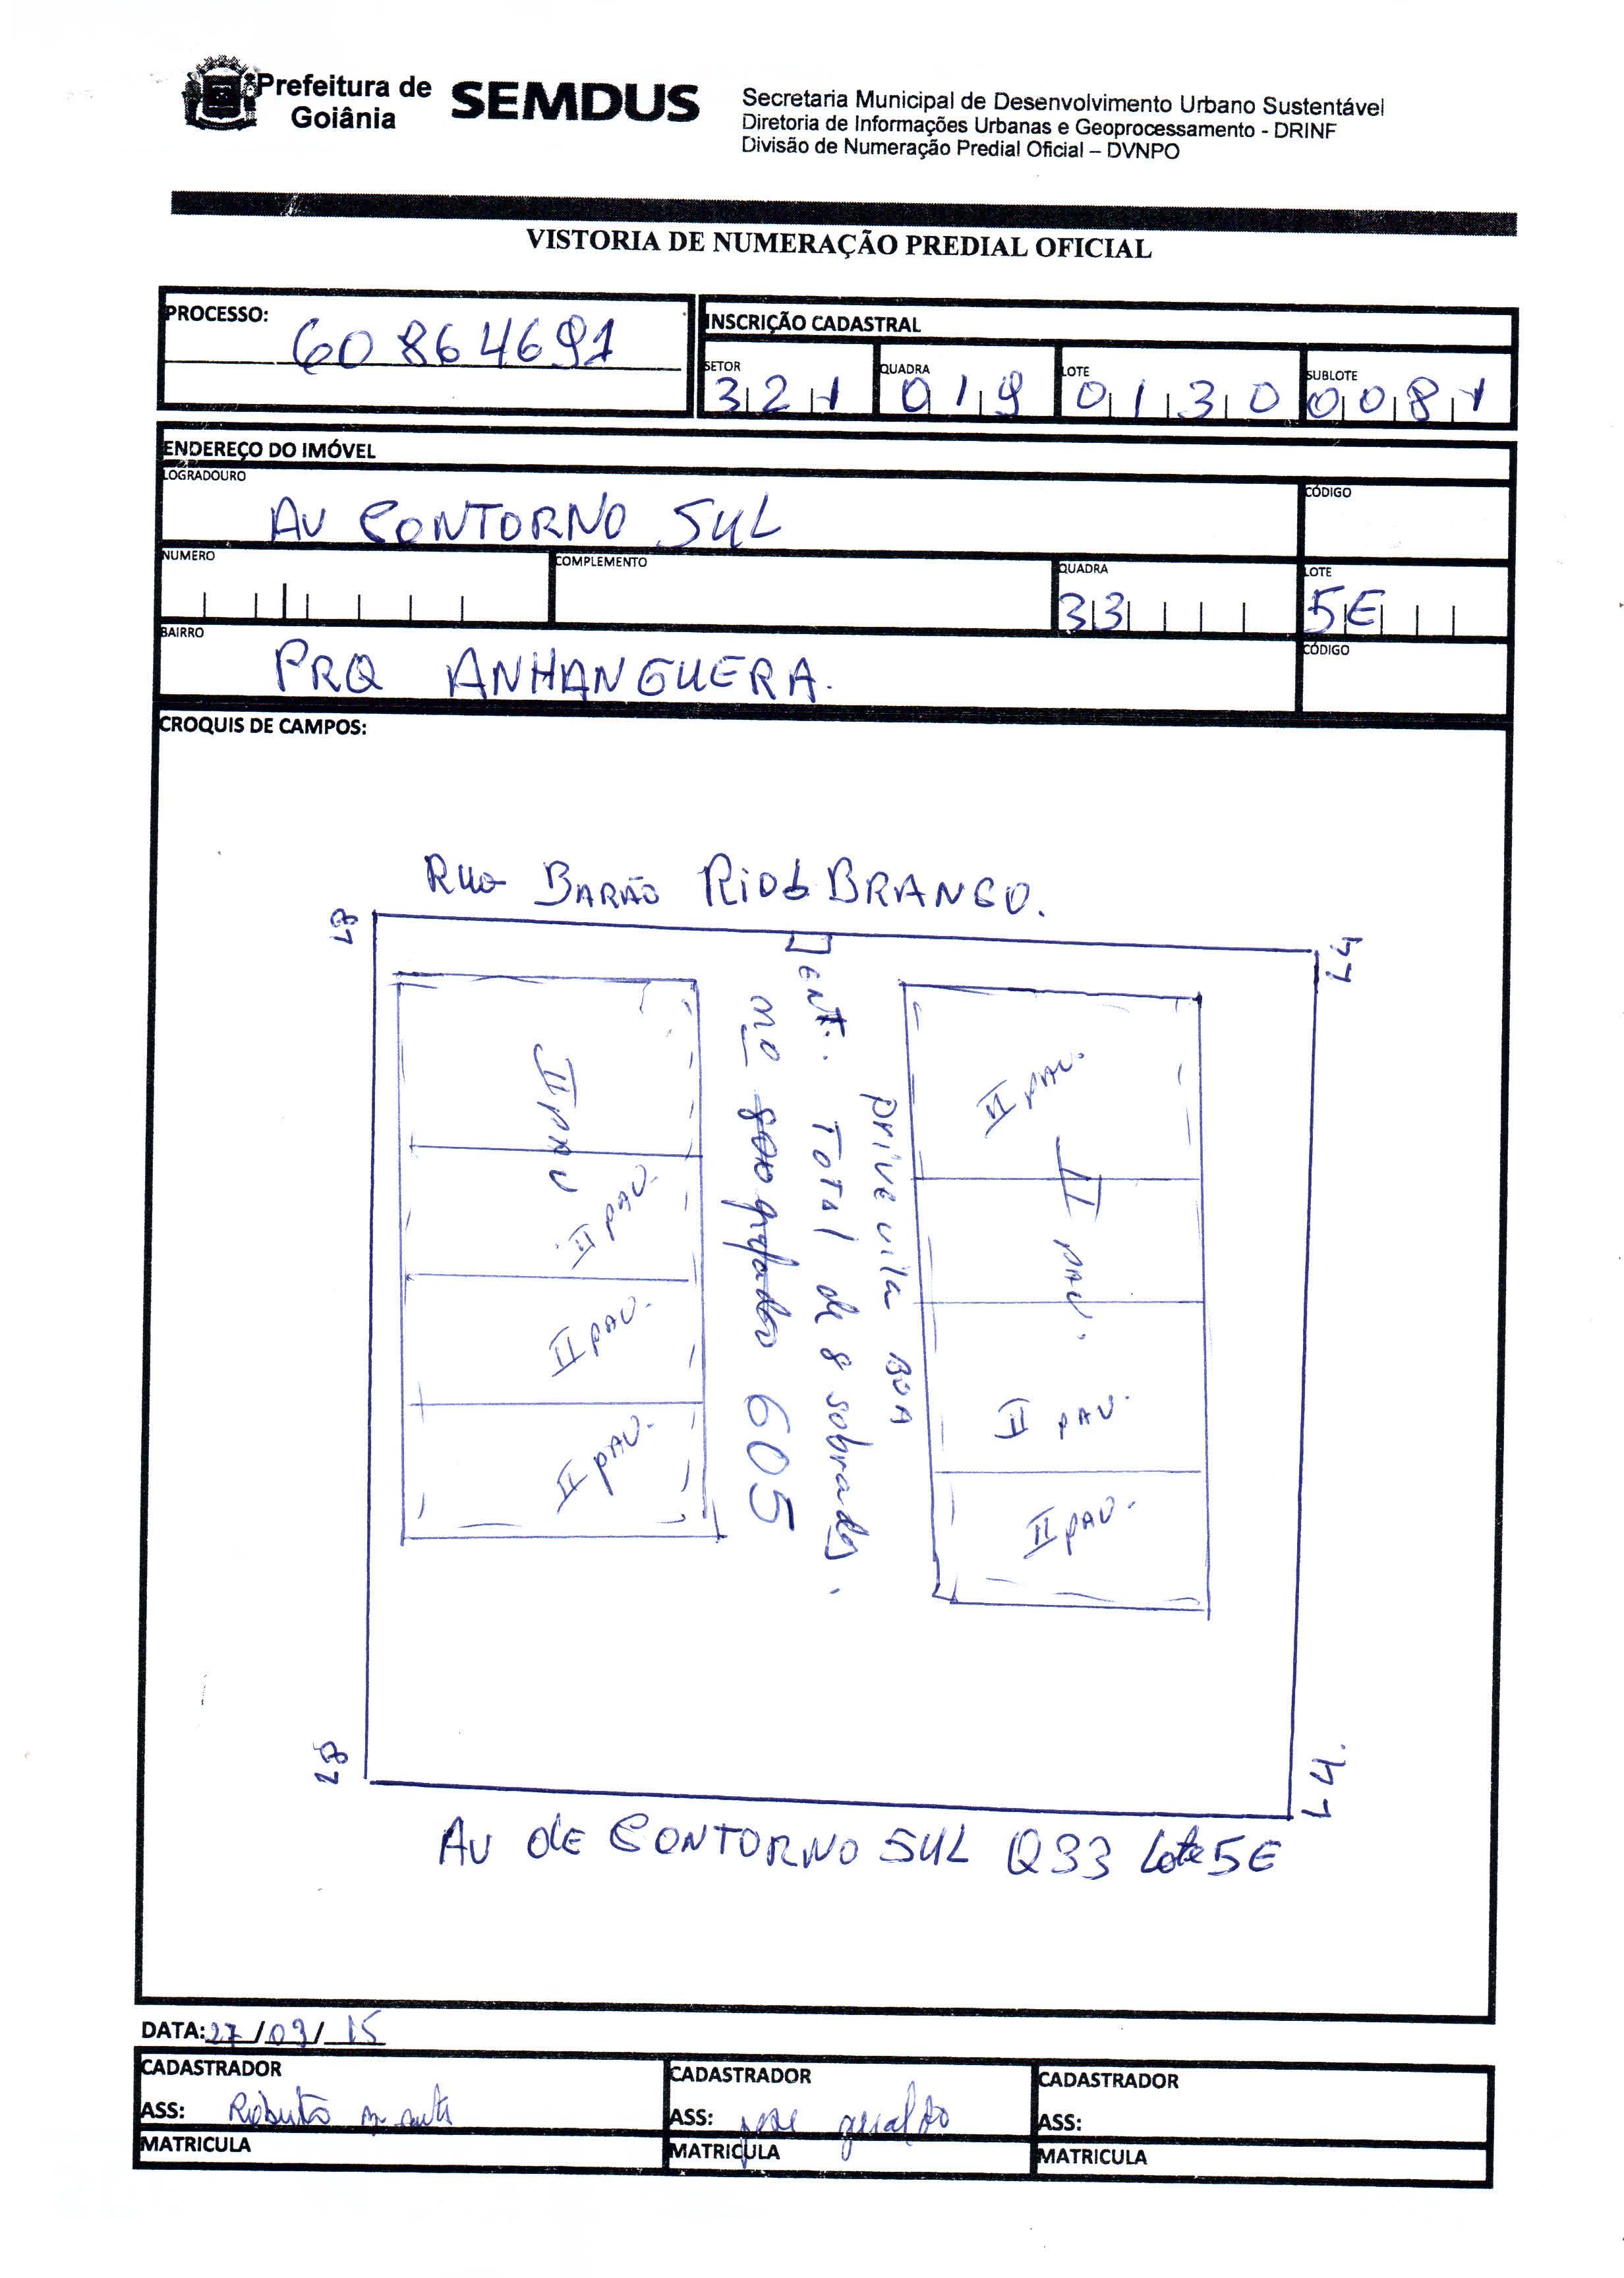 Prefeitura de
Goiânia
SEMDUS
Secretaria Municipal de Desenvolvimento Urbano Sustentável
Diretoria de Informações Urbanas e Geoprocessamento - DRINF
Divisão de Numeração Predial Oficial – DVNPO
VISTORIA DE NUMERAÇÃO PREDIAL OFICIAL
PROCESSO: 60864691
INSCRIÇÃO CADASTRAL
SETOR 321 QUADRA 019 LOTE 0130 SUBLOTE 0081
ENDEREÇO DO IMÓVEL
LOGRADOURO AV CONTORNO SUL CÓDIGO
NUMERO COMPLEMENTO QUADRA 33 LOTE 5E
BAIRRO PRQ ANHANGUERA. CÓDIGO
CROQUIS DE CAMPOS:
Rua BARÃO RIO BRANCO.
L8
L4
ENT. TOTAL de 8 sobrados.
prive vila BOA
nº 605
II PAV
II PAV.
II PAV.
II PAV.
II PAV.
II PAV.
II PAV.
II PAV.
L8
L4.
AV de CONTORNO SUL Q33 Lote 5E
DATA: 27/09/15
CADASTRADOR CADASTRADOR CADASTRADOR
ASS: ASS: jose geraldo ASS:
MATRICULA MATRICULA MATRICULA